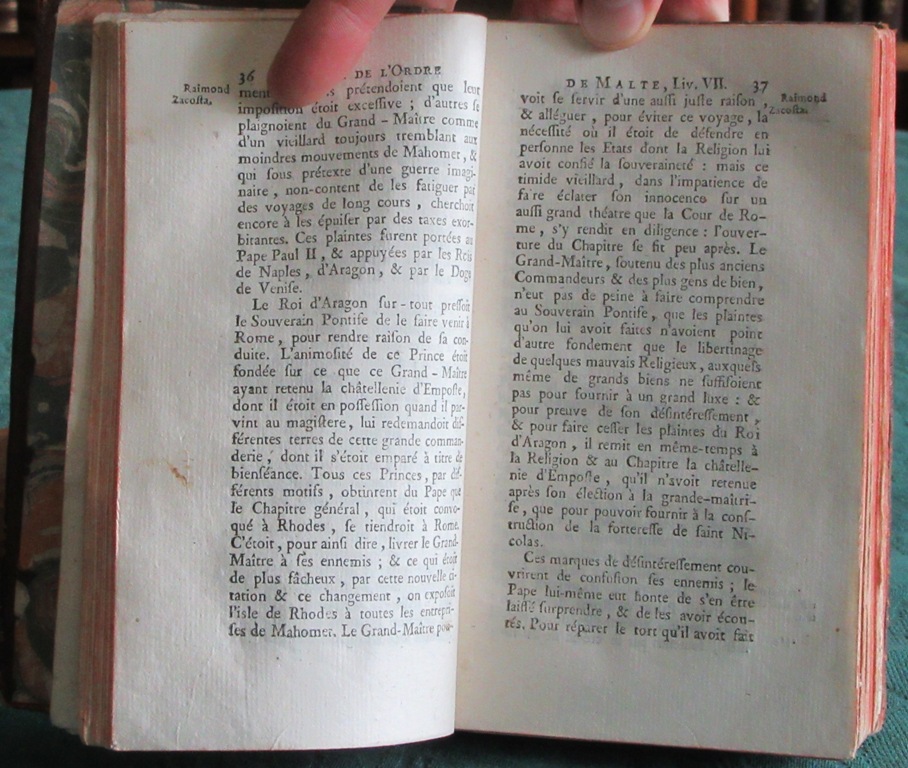 36 DE L'ORDRE
Raimond
Zacosta.
prétendoient que leur
imposition étoit excessive ; d'autres se
plaignoient du Grand-Maître comme
d'un vieillard toujours tremblant aux
moindres mouvemens de Mahomet, &
qui sous prétexte d'une guerre imagi-
naire, non-content de les fatiguer par
des voyages de long cours, cherchoit
encore à les épuiser par des taxes exor-
bitantes. Ces plaintes furent portées au
Pape Paul II, & appuyées par les Rois
de Naples, d'Aragon, & par le Doge
de Venise.
Le Roi d'Aragon sur-tout pressoit
le Souverain Pontife de le faire venir à
Rome, pour rendre raison de sa con-
duite. L'animosité de ce Prince étoit
fondée sur ce que ce Grand-Maître
ayant retenu la châtellenie d'Emposte,
dont il étoit en possession quand il par-
vint au magistere, lui redemandoit dif-
férentes terres de cette grande comman-
derie, dont il s'étoit emparé à titre de
bienséance. Tous ces Princes, par dif-
férents motifs, obtinrent du Pape que
le Chapitre général, qui étoit convo-
qué à Rhodes, se tiendroit à Rome.
C'étoit, pour ainsi dire, livrer le Grand-
Maître à ses ennemis ; & ce qui étoit
de plus fâcheux, par cette nouvelle ci-
tation & ce changement, on exposoit
l'isle de Rhodes à toutes les entrepri-
ses de Mahomet. Le Grand-Maître pou-
DE MALTE, Liv. VII. 37
Raimond
Zacosta.
voit se servir d'une aussi juste raison,
& alléguer, pour éviter ce voyage, la
nécessité où il étoit de défendre en
personne les Etats dont la Religion lui
avoit confié la souveraineté : mais ce
timide vieillard, dans l'impatience de
faire éclater son innocence sur un
aussi grand théatre que la Cour de Ro-
me, s'y rendit en diligence : l'ouver-
ture du Chapitre se fit peu après. Le
Grand-Maître, soutenu des plus anciens
Commandeurs & des plus gens de bien,
n'eut pas de peine à faire comprendre
au Souverain Pontife, que les plaintes
qu'on lui avoit faites n'avoient point
d'autre fondement que le libertinage
de quelques mauvais Religieux, auxquels
même de grands biens ne suffisoient
pas pour fournir à un grand luxe : &
pour preuve de son désintéressement,
& pour faire cesser les plaintes du Roi
d'Aragon, il remit en même-temps à
la Religion & au Chapitre la châtelle-
nie d'Emposte, qu'il n'avoit retenue
après son élection à la grande-maîtri-
se, que pour pouvoir fournir à la cons-
truction de la forteresse de saint Ni-
colas.
Ces marques de désintéressement cou-
vrirent de confusion ses ennemis ; le
Pape lui-même eut honte de s'en être
laissé surprendre, & de les avoir écou-
tés. Pour réparer le tort qu'il avoit fait